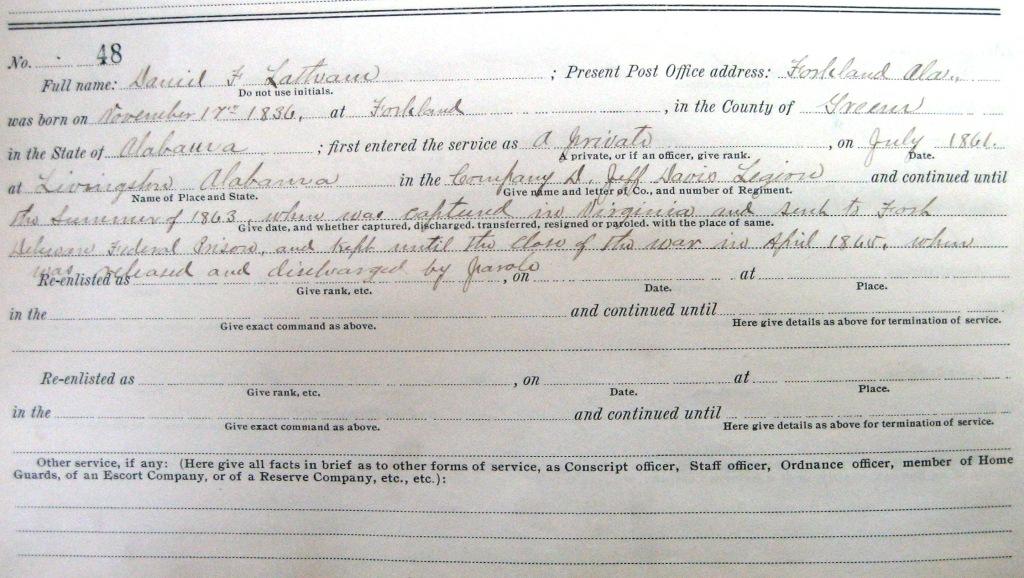 No. 48
Full name: Daniel F Latham ; Present Post Office address: Forkland Ala.
Do not use initials.
was born on November 17th 1836, at Forkland , in the County of Greene
in the State of Alabama ; first entered the service as A private , on July 1861.
A private, or if an officer, give rank. Date.
at Livingston Alabama in the Company D. Jeff Davis Legion and continued until
Name of Place and State. Give name and letter of Co., and number of Regiment.
the summer of 1863, when was captured in Virginia and sent to Fort
Give date, and whether captured, discharged. transferred, resigned or paroled. with the place of same.
Federal Prison, and kept until the close of the war in April 1865, when
was released and discharged by parole
Re-enlisted as , on at
Give rank, etc. Date. Place.
in the and continued until
Give exact command as above. Here give details as above for termination of service.
Re-enlisted as , on at
Give rank, etc. Date. Place.
in the and continued until
Give exact command as above. Here give details as above for termination of service.
Other service, if any: (Here give all facts in brief as to other forms of service, as Conscript officer, Staff officer, Ordnance officer, member of Home
Guards, of an Escort Company, or of a Reserve Company, etc., etc.):